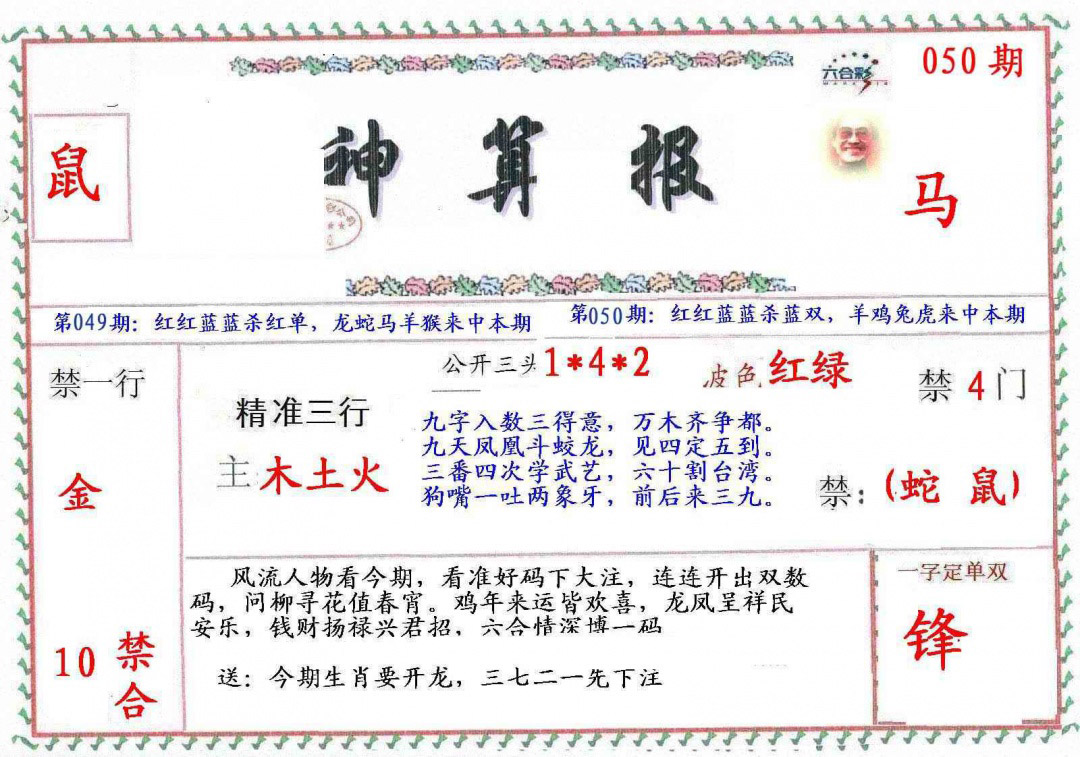 050 期
六合彩
鼠
神算报
马
第049期：红红蓝蓝杀红单，龙蛇马羊猴来中本期
第050期：红红蓝蓝杀蓝双，羊鸡兔虎来中本期
禁一行
金
10 禁合
公开三头1*4*2
波色 红绿
禁 4 门
精准三行
主木土火
九字入数三得意，万木齐争都。
九天凤凰斗蛟龙，见四定五到。
三番四次学武艺，六十割台湾。
狗嘴一吐两象牙，前后来三九。
禁：(蛇 鼠)
风流人物看今期，看准好码下大注，连连开出双数
码，问柳寻花值春宵。鸡年来运皆欢喜，龙凤呈祥民
安乐，钱财扬禄兴君招，六合情深博一码
送：今期生肖要开龙，三七二一先下注
一字定单双
锋